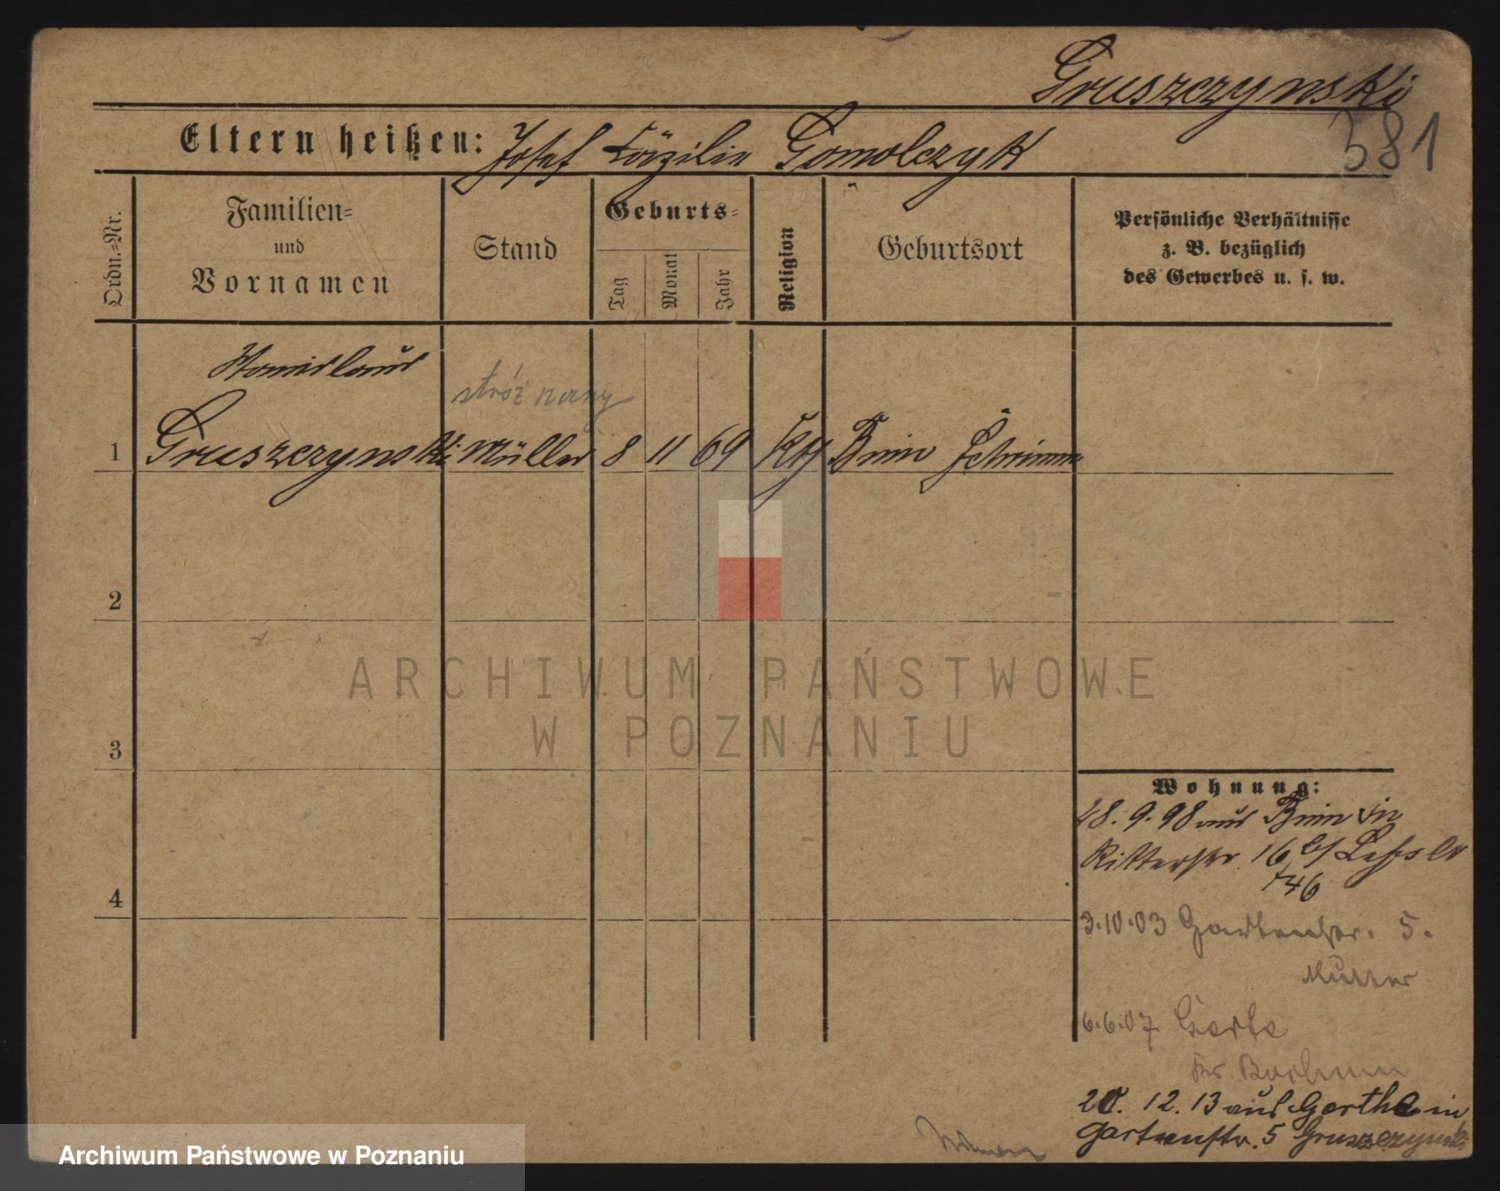 Gruszczynski
381
Eltern heißen: Josef Cäzilie Gomolczyk
Ordn.-Nr.
Familien-
und
Vornamen
Stand
Geburts-
Tag
Monat
Jahr
Religion
Geburtsort
Persönliche Verhältnisse
z. B. bezüglich
des Gewerbes u. s. w.
Stanislaus
stróż
1 Gruszczynski Müller 8 11 69 Kth Bnin Schrimm
2
ARCHIWUM PAŃSTWOWE
W POZNANIU
3
Wohnung:
28. 9. 98 aus Bnin in
Ritterstr. 16 b/
4
3.10.03 Gartenstr. 5.
Mutter
6.6.07 Gerthe
Kr. Bochum
20. 12. 13 aus Gerthe in
Gartenstr. 5 Gruszczynski
Archiwum Państwowe w Poznaniu